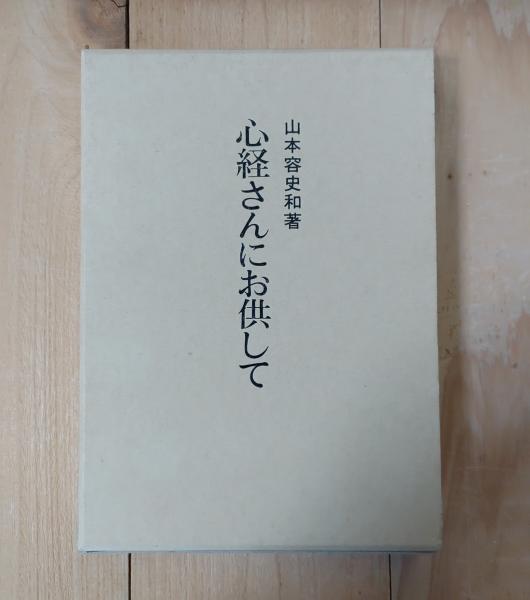 山本容史和著
心経さんにお供して